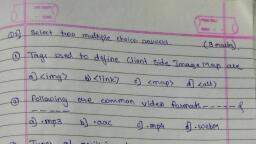 Q5] Select two multiple choice answers (3 marks)
① Tags used to define client side Image Map are
a] <img> b] <link> c] <map> d] <all>
② Following are common video formats
a] .mp3 b] .aac c] .mp4 d] .webM